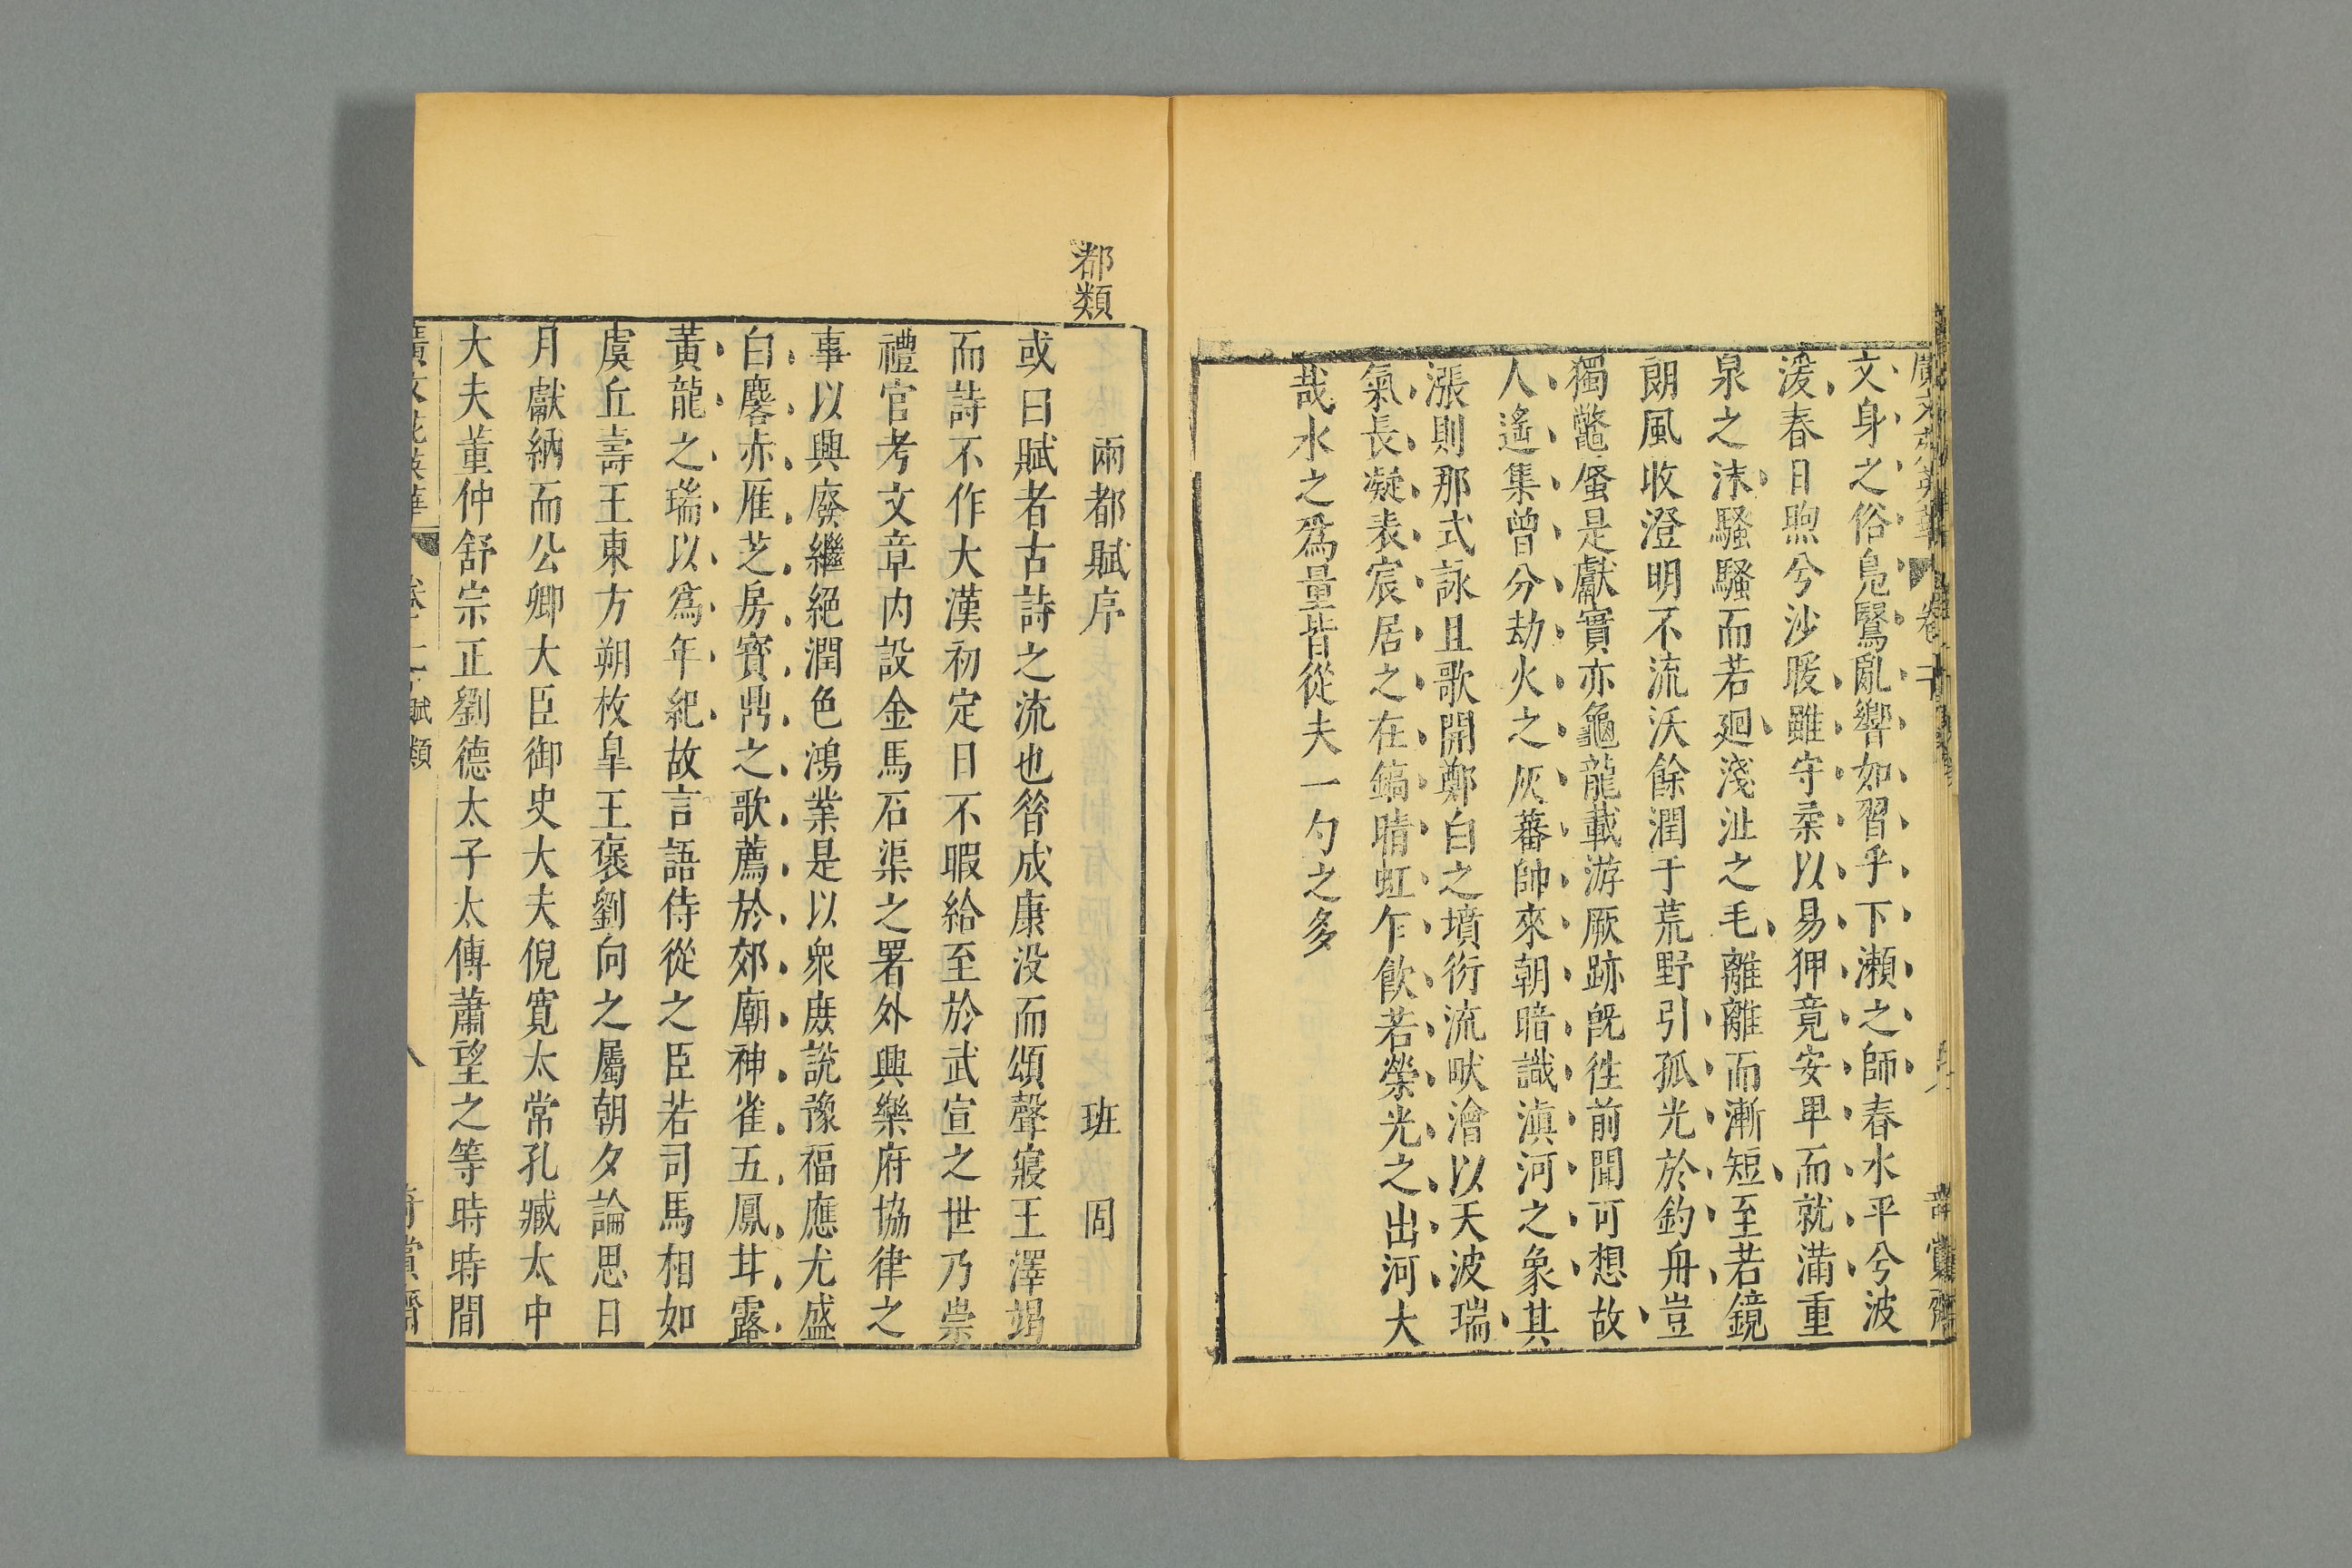 文身之俗鳧鷖亂響如習乎下瀬之師春水平兮波
湲春日煦兮沙暖雖守柔以易狎竟安卑而就満重
泉之沫騷騷而若廻淺沚之毛離離而漸短至若鏡
朗風收澄明不流沃餘潤于荒野引孤光於釣舟豈
獨鼈蜃是獻實亦龜龍載游厥跡旣徃前聞可想故
人遙集曾分劫火之灰蕃帥來朝暗識滇河之象其
漲則那式詠且歌開鄭白之墳衍流畎澮以天波瑞
氣長凝表宸居之在鎬晴虹乍飲若榮光之出河大
哉水之爲量皆從夫一勺之多
都類
兩都賦序 班固
或曰賦者古詩之流也昝成康没而頌聲寢王澤竭
而詩不作大漢初定日不暇給至於武宣之世乃崇
禮官考文章内設金馬石渠之署外興樂府協律之
事以興廢繼絕潤色鴻業是以衆庻說豫福應尤盛
白麐赤雁芝房寶鼎之歌薦於郊廟神雀五鳳甘露
黃龍之瑞以爲年紀故言語侍從之臣若司馬相如
虞丘壽王東方朔枚皐王褒劉向之屬朝夕論思日
月獻納而公卿大臣御史大夫倪寛太常孔臧太中
大夫董仲舒宗正劉德太子太傅蕭望之等時時間
廣文苑英華 卷 賦類 八 奇賞齋